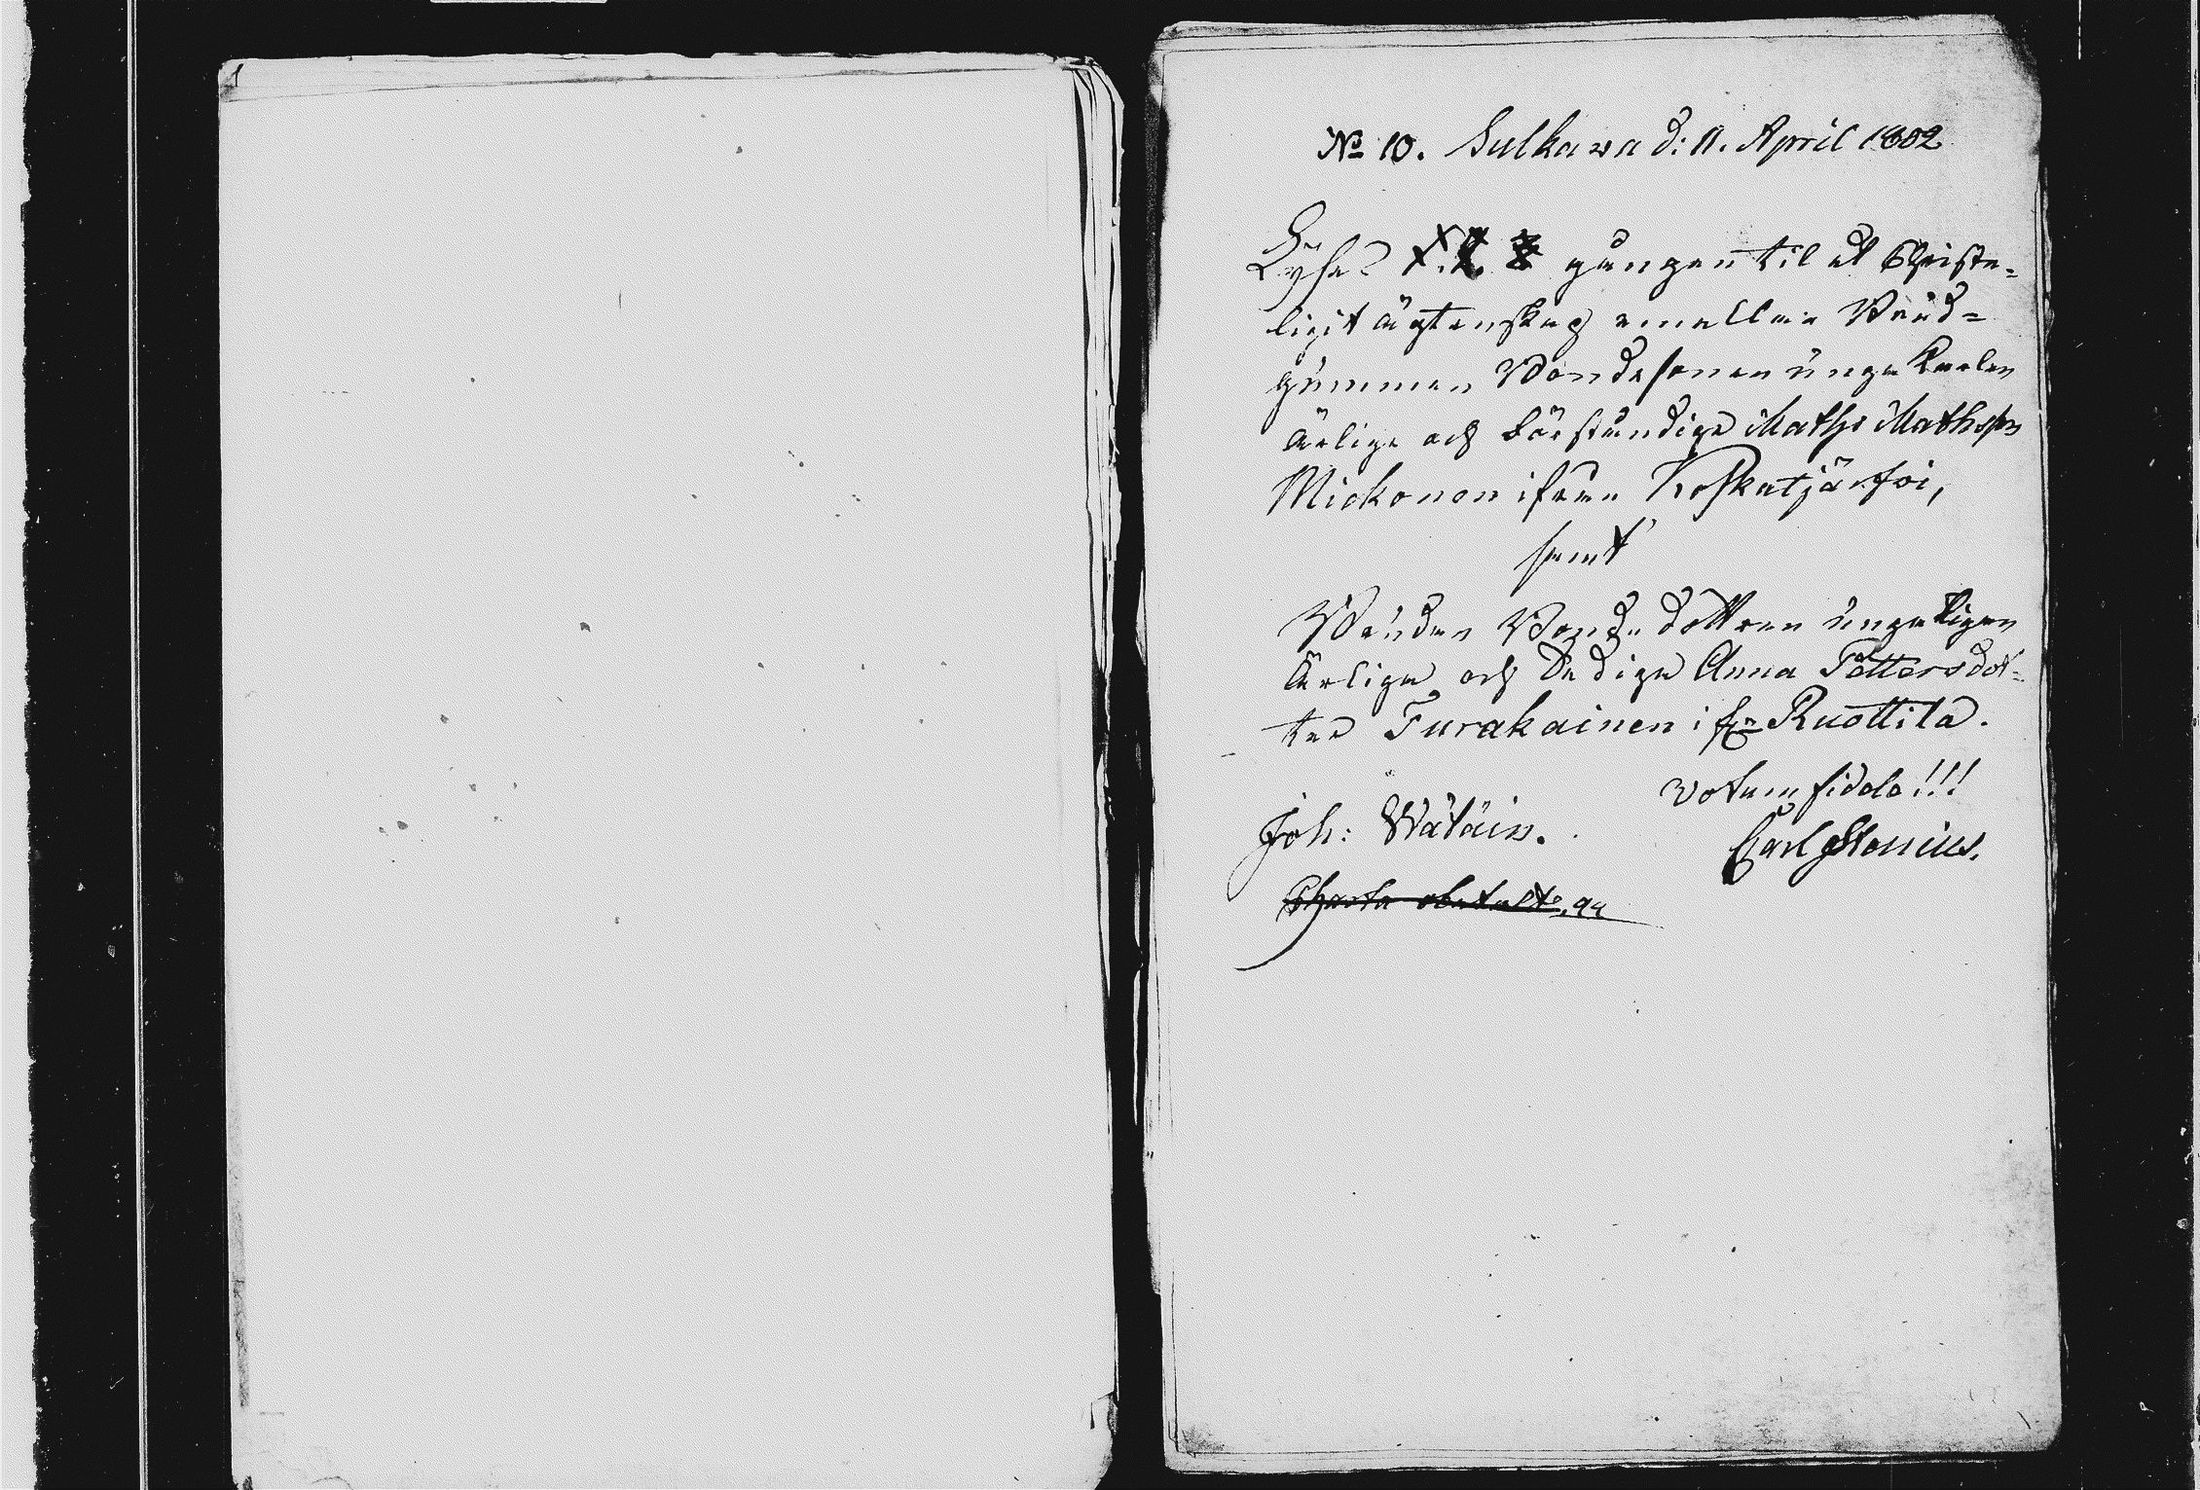 No 10. Sulkawa d: 11. April 1802
Lyses gången til et Christe-
ligit ägtenskap emellan Brud-
gummen Bondesonen unge Karlen
ärlige och beskedlige Maths Mathsson
Mickonen ifrån Koskutjärfwi,
samt
Bruden Bonde dottren unga Pigan
ärliga och Dydiga Anna Pettersdot-
ter Turakainen ifrn Ruottila.
Votum fidele!!!
Joh: Wätäin.
Carl Stenius.
Charta